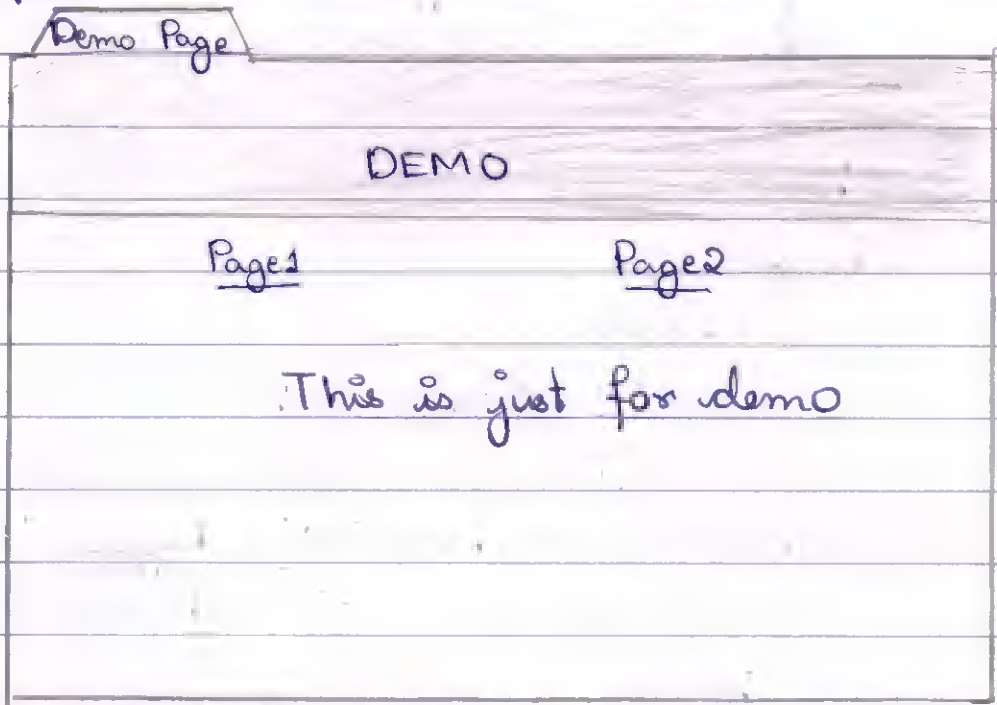 Demo Page
DEMO
Page1 Page2
This is just for demo